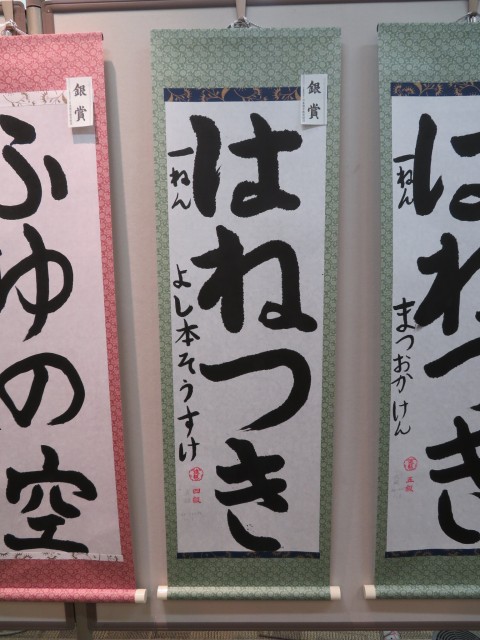 銀賞
ふゆの空
銀賞
はねつき
一ねん
よし本そうすけ
四級
はねつき
一ねん
まつおかけん
五級